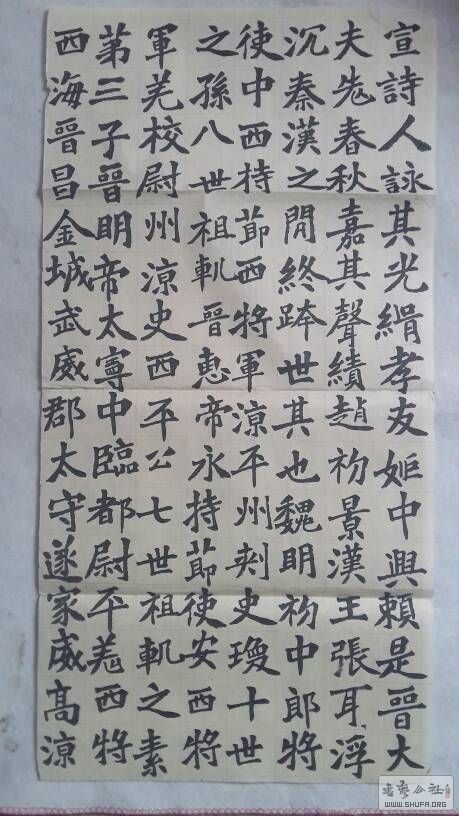 宣詩人詠其光緝孝友姬中興賴是晉大
夫老春秋嘉其聲績趙礿景漢王張耳浮
沉秦漢之閒終跨世其也魏明礿中郎將
使中西持節西將軍涼平州刺史瓊十世
之孫八世祖軌晉惠帝永持節使安西將
軍羌校尉州涼史西平公七世祖軌之素
第三子晉明帝太寧中臨都尉平羌西將
西海晉昌金城武威郡太守遂家威高涼
書藝公社
WWW.SHUFA.ORG